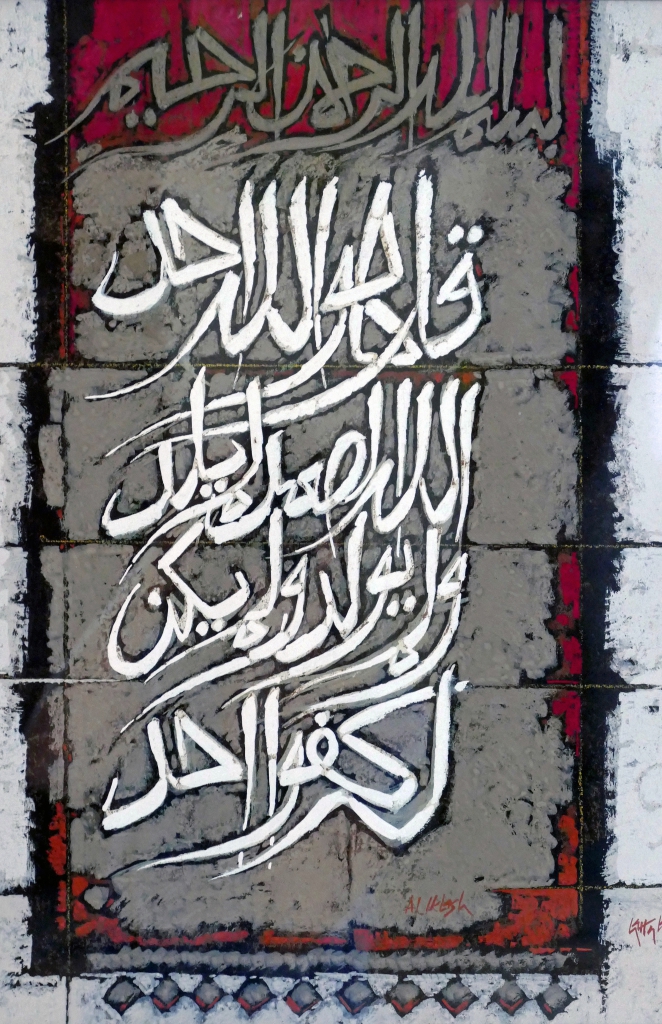 بسم الله الرحمن الرحيم
قل هو الله احد
الله الصمد لم يلد
ولم يولد ولم يكن
له كفوا احد
Al Ikhlash